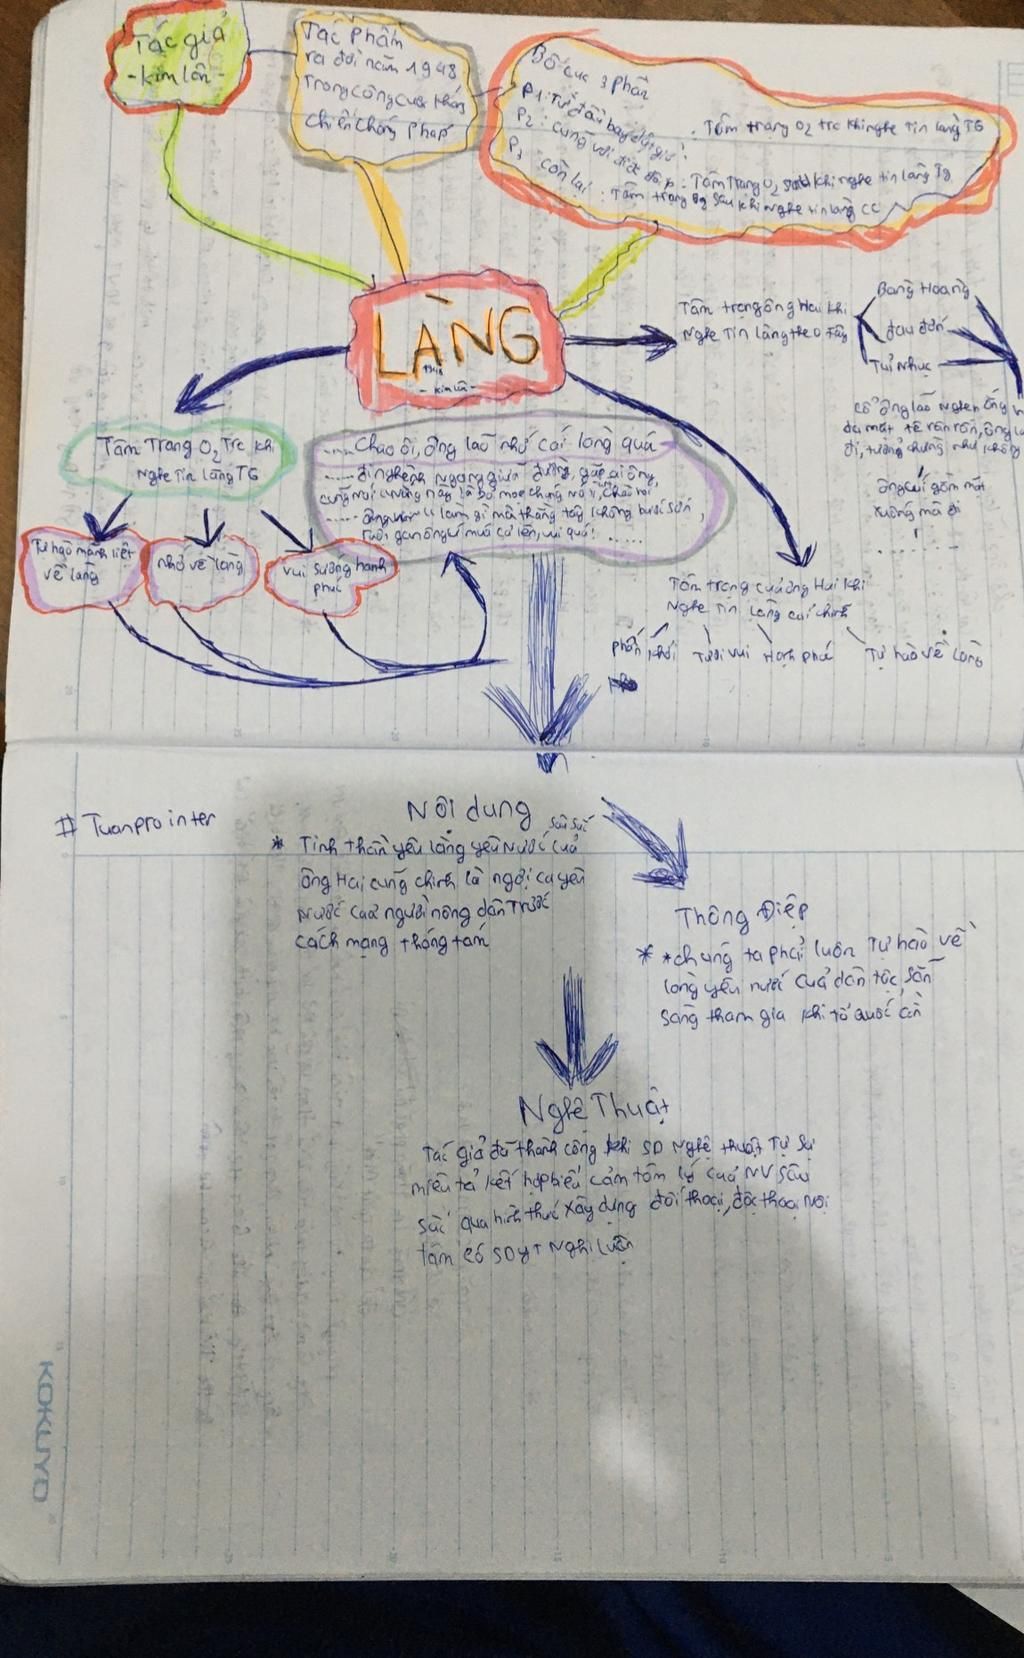 Tác giả
- Kim Lân -
Tác Phẩm
ra đời năm 1948
Trong công cuộc kháng
chiến chống pháp
Bố cục 3 phần
P1: Từ đầu
Tâm trạng O2 trc khi nghe tin làng TG
P2:
Tâm Trạng O2 khi nghe tin làng Tg
P3 còn lại: Tâm trạng sau khi nghe tin làng CC
LÀNG
1948
- Kim Lân -
Tâm trạng ông Hai khi
Nghe Tin làng theo Tây
Bàng Hoàng
đau đớn
Tủi Nhục
cổ ông lão nghẹn ắng
da mặt tê rân rân, ông
đi, tưởng chừng như không
ông cúi gằm mặt
xuống mà đi
Tâm Trạng O2 Trc khi
Nghe tin làng TG
Tự hào mãnh liệt
về làng
nhớ về làng
vui sướng hạnh
phúc
..... Chao ôi, ông lão nhớ cái làng quá
...... đi nghênh ngang giữa đường, gặp ai ông,
cũng
tây không bước sớm,
Ruột gan ông cứ múa cả lên, vui quá! ......
Tâm trạng của ông Hai khi
Nghe tin làng cải chính
phấn khởi Tươi vui Hạnh phúc Tự hào về làng
# Tuanprointer
Nội dung
sâu sắc
* Tinh thần yêu làng yêu nước của
ông Hai cũng chính là ngợi ca yêu
nước của người nông dân Trước
cách mạng tháng tám
Thông Điệp
* * chúng ta phải luôn Tự hào về
lòng yêu nước của dân tộc, sẵn
sàng tham gia khi tổ quốc cần
Nghệ Thuật
Tác giả đã thành công khi SD Nghệ thuật Tự sự
miêu tả kết hợp biểu cảm tâm lý của NV sâu
sắc qua hình thức xây dựng đối thoại, độc thoại nội
tâm có SDYT Nghị luận
KOKUYO